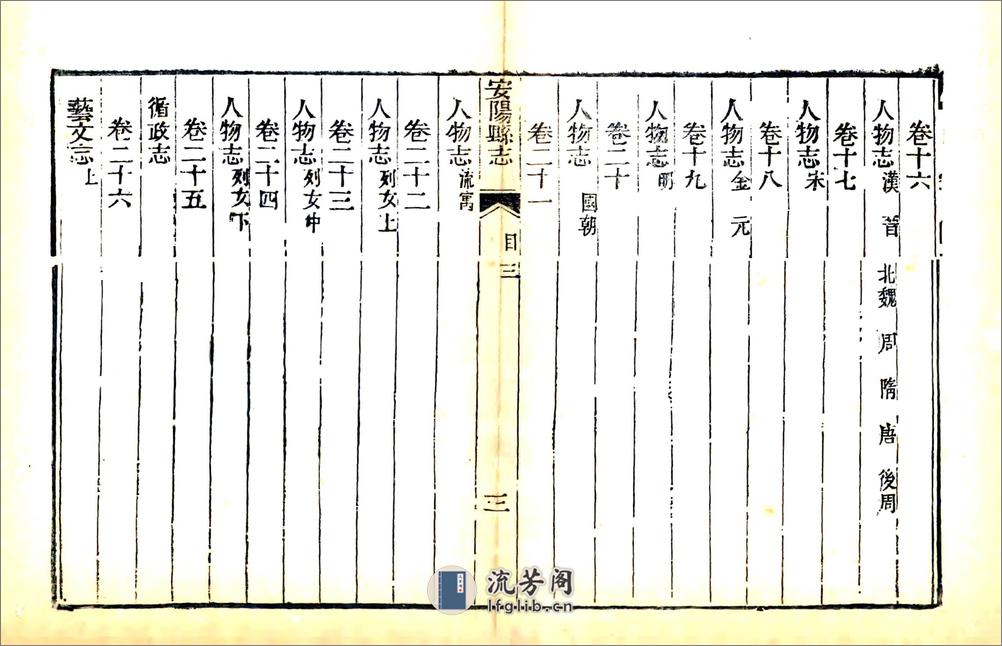 卷十六
人物志 漢 晉 北魏 周 隋 唐 後周
卷十七
人物志 宋
卷十八
人物志 金 元
卷十九
人物志 明
卷二十
人物志 國朝
卷二十一
安陽縣志 目三 三
人物志 流寓
卷二十二
人物志 列女上
卷二十三
人物志 列女中
卷二十四
人物志 列女下
卷二十五
循政志
卷二十六
藝文志 上
流芳阁
lfglib.cn